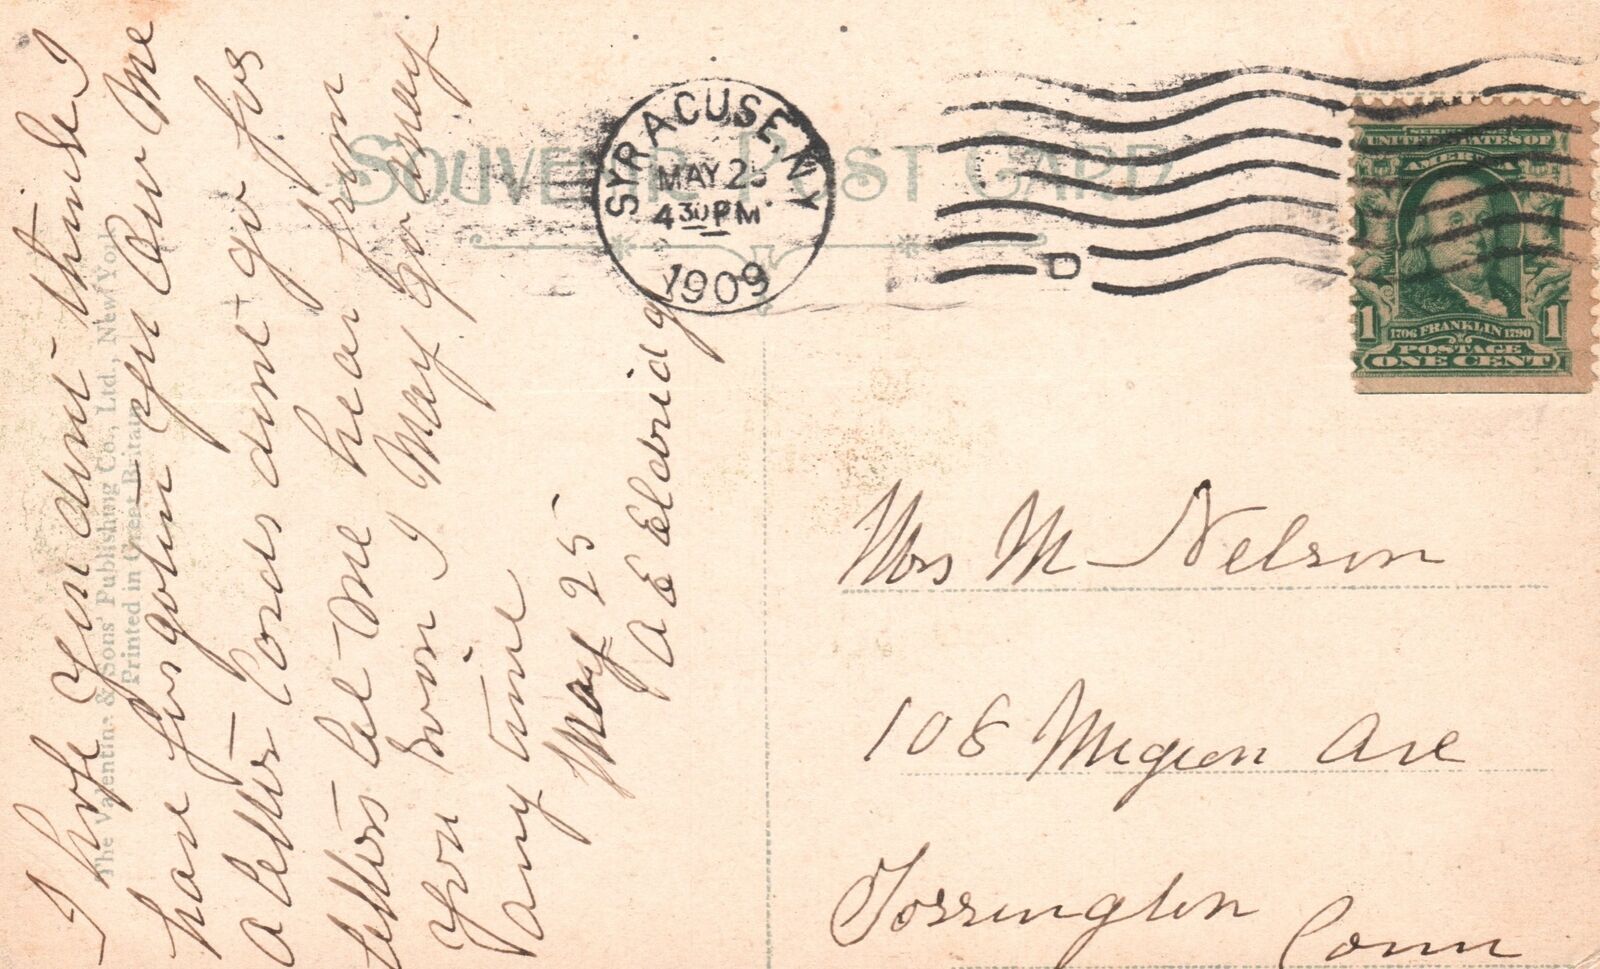 SOUVENIR POST CARD
SYRACUSE, N.Y.
MAY 25
4 30 PM
1909
D
SERIES 1902
UNITED STATES OF
AMERICA
1 1
1706 FRANKLIN 1790
POSTAGE
ONE CENT
The Valentine & Sons' Publishing Co., Ltd., New York
Printed in Great Britain
I hope you dont think I
have forgotin you Aw me
a letter Cords dont go for
letters let me hear from
you soon I May go away
any time
May 25
A E Eldridg
Mrs M Nelson
108 Migeon Ave
Torrington
Conn